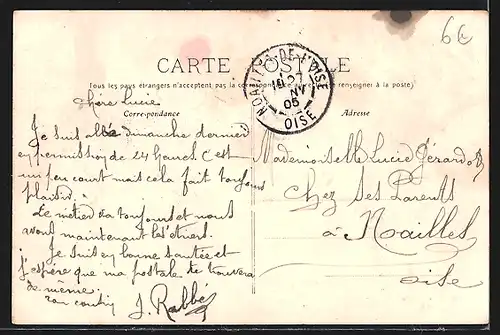 6€
CARTE POSTALE
Tous les pays étrangers n'acceptent pas la correspondance (se renseigner à la poste)
Correspondance
Adresse
NOAILLES-DE-L'OISE
NV
05
OISE
Chère Lucie
Je suit allée dimanche dernier
en permission de 24 heures c'est
un peu court mais cela fait toujours
plaisir.
Le métier va toujours et nous
avons maintenant les étriers.
Je suis en bonne santée et
j'espère que ma postale te trouvera
de même.
ton cousin J. Rabbé
Mademoiselle Lucie Gérardot
Chez Ses Parents
à Noailles
Oise